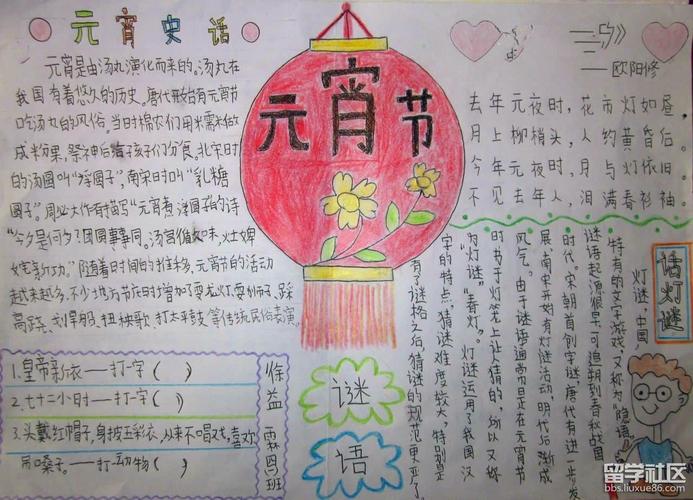 元宵史话
元宵是由汤丸演化而来的。汤丸在
我国有着悠久的历史。唐代开始有元宵节
吃汤丸的风俗。当时棉农们用糯米做
成米果,祭神后给孩子们分食。北宋时
的汤圆叫“浮圆子”,南宋时叫“乳糖
圆子”。周必大作有描写“元宵煮浮圆子的诗
“今夕是何夕?团圆事事同。汤官循旧味,灶婢
诧新功。”随着时间的推移,元宵节的活动
越来越多,不少地方节庆时增加了耍龙灯,耍狮子、踩
高跷、划旱船、扭秧歌、打太平鼓等传统民俗表演。
元宵节
——欧阳修
去年元夜时,花市灯如昼。
月上柳梢头,人约黄昏后。
今年元夜时,月与灯依旧
不见去年人,泪满春衫袖。
话灯谜
灯谜,中国
特有的文字游戏,又称为“隐语”。
谜语起源很早,可追朔到春秋战国
时代。宋朝首创字谜,唐代有进一步发
展。南宋开始有灯谜活动,明代后渐成
风气。由于谜语通常是在元宵节
时书于灯笼上让人猜的,所以又称
为“灯谜”“春灯”。灯谜运用了我国汉
字的特点,猜谜难度较大,特别是
有了谜格之后,猜谜的规范更严了
1.皇帝新衣——打一字( )
2.七十二小时——打一字( )
3.头戴红帽子,身披五彩衣,从来不唱戏,喜欢
吊嗓子。——打一动物( )
徐益霖四班
谜
语
留学社区
bbs.liuxue86.com